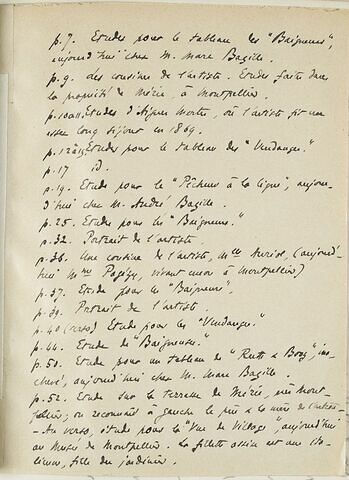 p. 7. Etudes pour le tableau des "Baigneurs",
aujourd'hui chez M. Marc Bazille.
p. 9. des cousines de l'artiste. Etudes faites dans
la propriété de Méric, à Montpellier.
p. 10 à 11. Etudes d'Aigues Mortes, où l'artiste fit un
assez long séjour en 1869.
p. 12 à 15. Etudes pour le tableau des "Vendanges."
p. 17 id.
p. 19. Etude pour le "Pêcheur à la ligne", aujour-
d'hui chez M. André Bazille.
p. 25. Etude pour les "Baigneurs."
p. 32. Portrait de l'artiste.
p. 36. Une cousine de l'artiste, Mlle (aujourd'
hui Mme vivant encore à Montpellier)
p. 37. Etude pour les "Baigneurs".
p. 39. Portrait de l'artiste.
p. 40 (verso) Etude pour les "Vendanges."
p. 44. Etude de "Baigneuse."
p. 50. Etude pour un tableau de "Ruth & Booz", ina-
chevé, aujourd'hui chez M. Marc Bazille.
p. 52. Etude sur la terrasse de Méric, près Mont-
pellier; on reconnaît à gauche le père & la mère de l'artiste.
- Au verso, étude pour la "Vue de Village", aujourd'hui
au Musée de Montpellier. La fillette assise est une ita-
lienne, fille du jardinier.